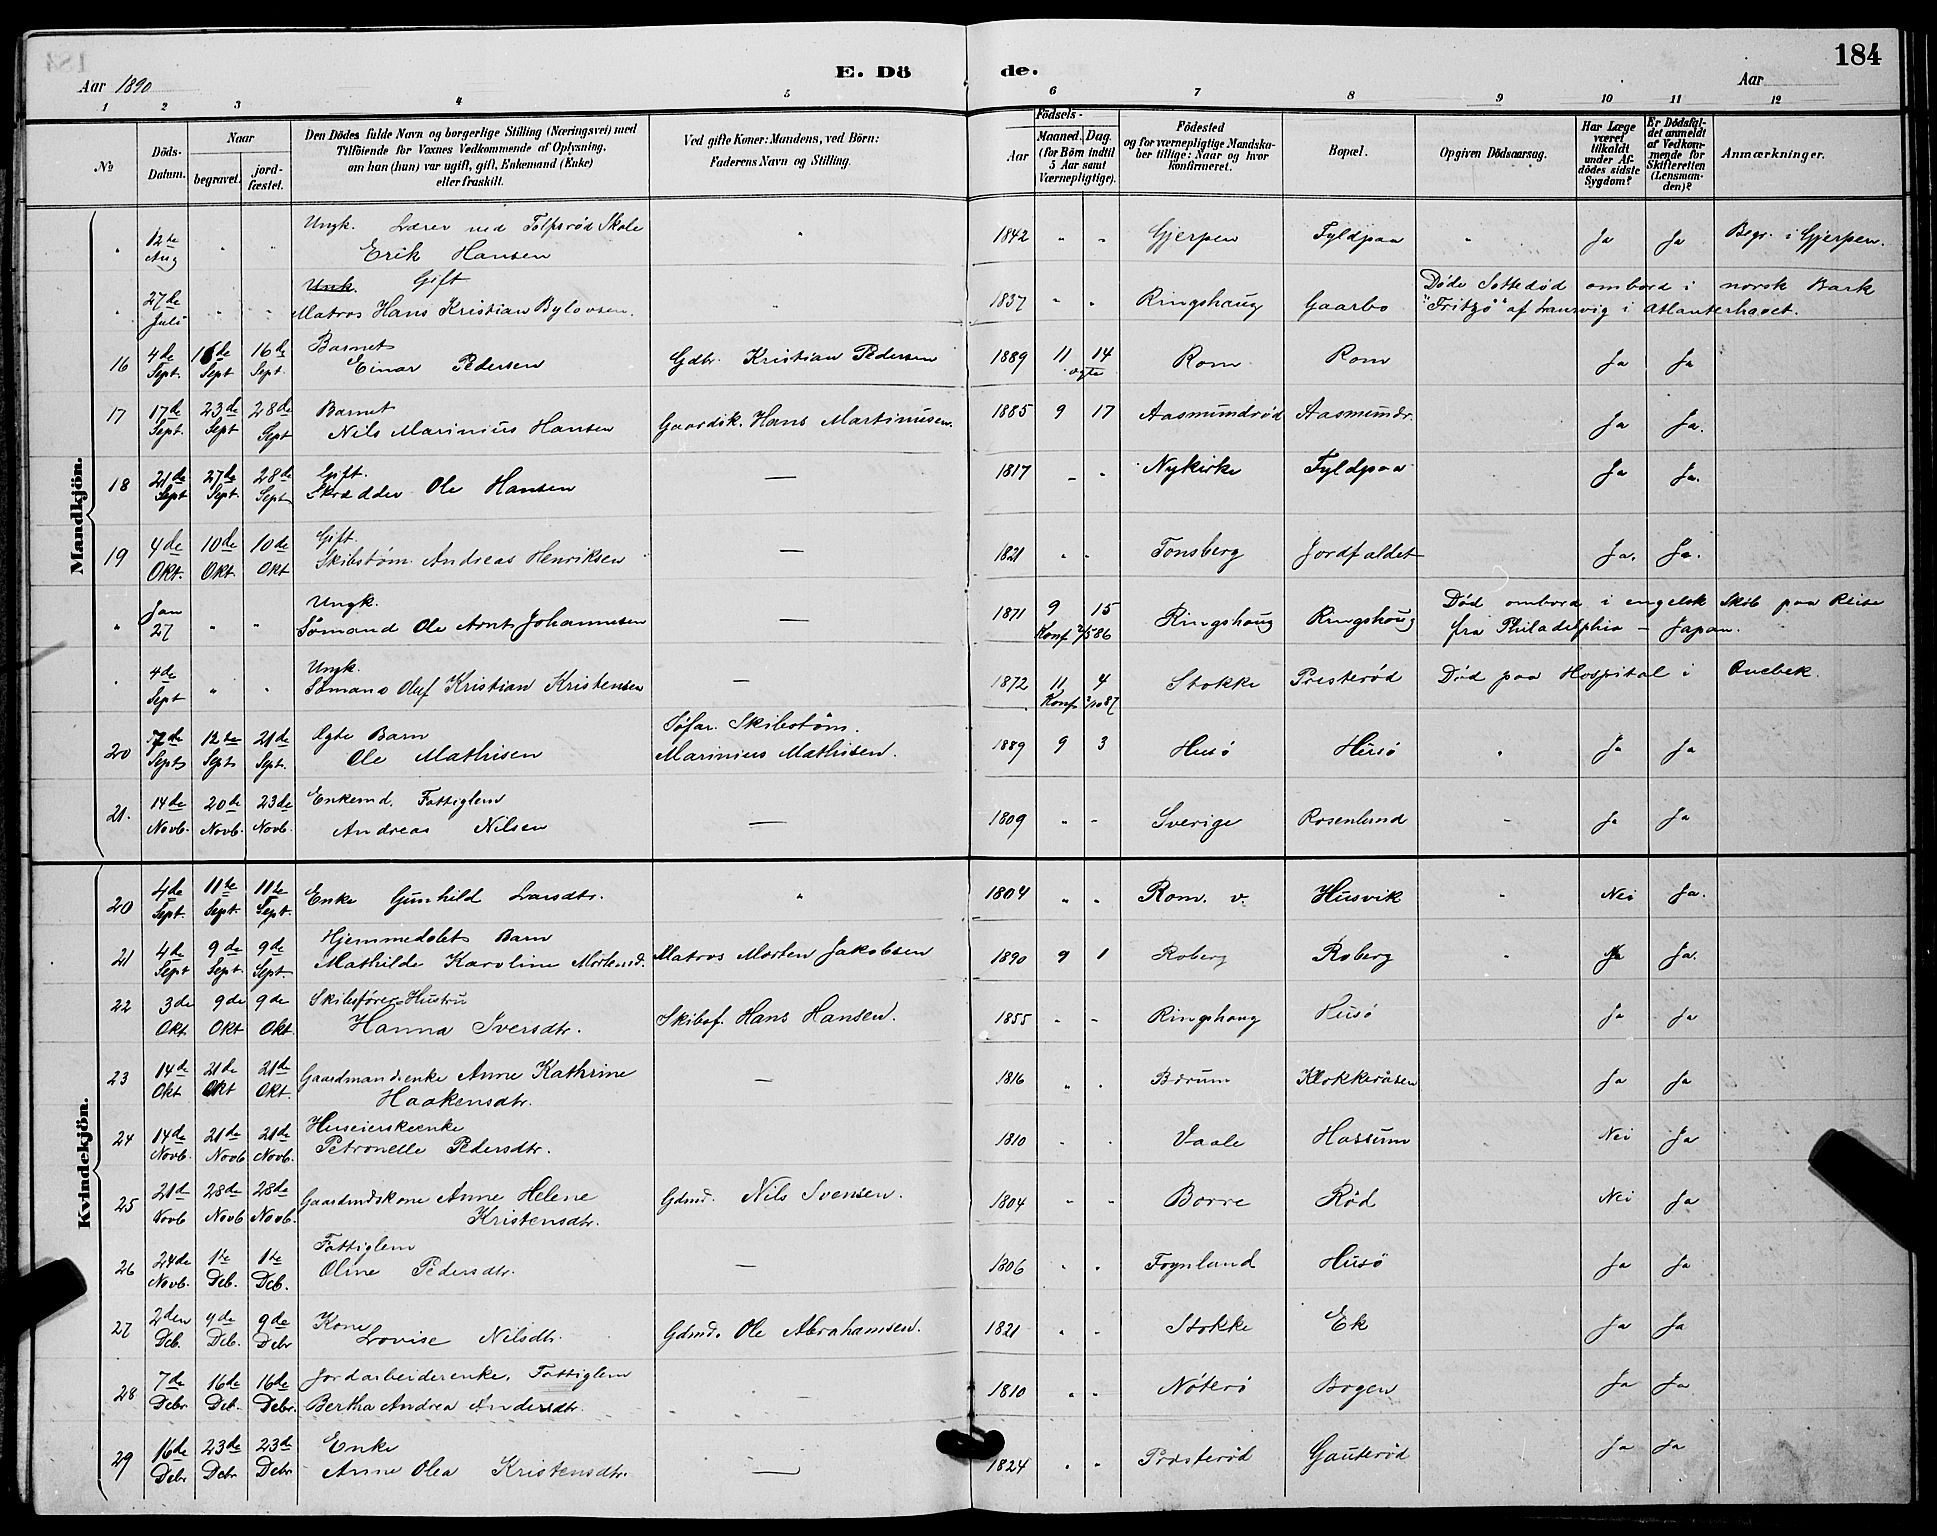 184
Aar 1890
E. Dö de.
Aar
1 2 3 4 5 6 7 8 9 10 11 12
No
Döds-Datum.
Naar begravet. jord-fæstet.
Den Dödes fulde Navn og borgerlige Stilling (Næringsvei) med Tilföiende for Voxnes Vedkommende af Oplysning, om han (hun) var ugift, gift, Enkemand (Enke) eller fraskilt.
Ved gifte Koner: Mandens, ved Börn: Faderens Navn og Stilling.
Födsels-
Aar Maaned. Dag. (for Börn indtil 5 Aar samt Værnepligtige).
Födested og for værnepligtige Mandskaber tillige: Naar og hvor konfirmeret.
Bopæl.
Opgiven Dödsaarsag.
Har Læge været tilkaldt under Afdödes sidste Sygdom?
Er Dödsfaldet anmeldt af Vedkommende for Skifteretten (Lensmanden)?
Anmærkninger.
Mandkjön.
" 12te Aug " " Ungk. Lærer ved Tolpsrød Skole Erik Hansen " 1842 " " Gjerpen Fyldpaa " Ja Ja Begr. i Gjerpen.
" 27de Juli " " Unk. Gift Matros Hans Kristian Bylovsen. " 1837 " " Ringshaug Gaarbo Døde Sottedød ombord i norsk Bark "Fritzö" af Laurvig i Atlanterhavet.
16 4de Sept. 16de Sept 16de Sept. Barnet Einar Pedersen Gdbr. Kristian Pedersen 1889 11 14 ægte Rom Rom Ja Ja
17 17de Sept. 23de Sept 28de Sept Barnet Nils Marinius Hansen Gaardsk. Hans Martinusen. 1885 9 17 Aasmundrød Aasmundr. Ja Ja.
18 21de Sept 27de Sept. 28de Sept Gift. Skrædder Ole Hansen — 1817 " " Nykirke Fyldpaa Ja Ja.
19 4de Okt. 10de Okt. 10de Okt Gift. Skibstøm. Andreas Henriksen — 1821 " " Tonsberg Jordfaldet Ja. Ja.
" Jan 27 " " Ungk. Sømand Ole Arnt Johannesen — 1871 9 15 Konf 2/5 86 Ringshaug Ringshoug Død ombord i engelsk Skib paa Reise fra Philadelphia - Japan.
" 4de Sept " " Ungk. Sømand Oluf Kristian Kristensen — 1872 11 4 Konf 2/10 87 Stokke Presterød Død paa Hospital i Quebek.
20 7de Sept 12te Sept 21de Sept. Ægte Barn Ole Mathisen Søfar. Skibstøm. Marinius Mathisen. 1889 9 3 Husö Husö " Ja Ja
21. 14de Novb. 20de Novb. 23de Novb. Enkemd. Fattiglem Andreas Nilsen — 1809 " " Sverige Rosenlund Ja Ja
Kvindekjön.
20 4de Sept. 11te Sept. 11te Sept. Enke Gunhild Larsdtr. " 1804 " " Rom. v. Husvik " Nei Ja.
21 4de Sept 9de Sept. 9de Sept Hjemmedøbts Barn Mathilde Karoline Mortensd. Matros Morten Jakobsen 1890 9 1 Roberg Roberg " Ja Ja.
22 3de Okt 9de Okt 9de Okt. Skibsfører Hustru Hanna Iversdtr. Skibsf. Hans Hansen. 1855 " " Ringshaug Husö Ja Ja
23 14de Okt 21de Okt 21de Okt. Gaardmandsenke Anne Kathrine Haakensdtr. — 1816 " " Bærum Klokkeraasen Ja Ja
24 14de Novb. 21de Novb 21de Novb. Huseierskeenke Petronelle Pedersdtr. 1810 " " Vaale Hassum Nei Ja
25 21de Novb 28de Novb 28de Novb. Gaardmdskone Anne Helene Kristensdtr. Gdmd. Nils Svensen. 1804 " " Borre Rød Nei Ja
26 24de Novb. 1te Deb. 1te Deb. Fattiglem Oline Pedersdtr. — 1806 " "Føynland Husö Ja Ja
27 2den Deb. 9de Deb. 9de Debr Kone Lovise Nilsdtr. Gdmd. Ole Abrahamsen. 1821 " " Stokke Ek Ja Ja
28 7de Debr. 16de Deb. 16de Debr. Jordarbeiderenke. Fattiglem Bertha Andrea Andersdtr. — 1810 " " Nöterö Bogen Ja Ja
29 16de Debr 23de Debr 23de Debr Enke Anne Olea Kristensdtr. — 1824 " " Præsterød Gauterød Ja Ja